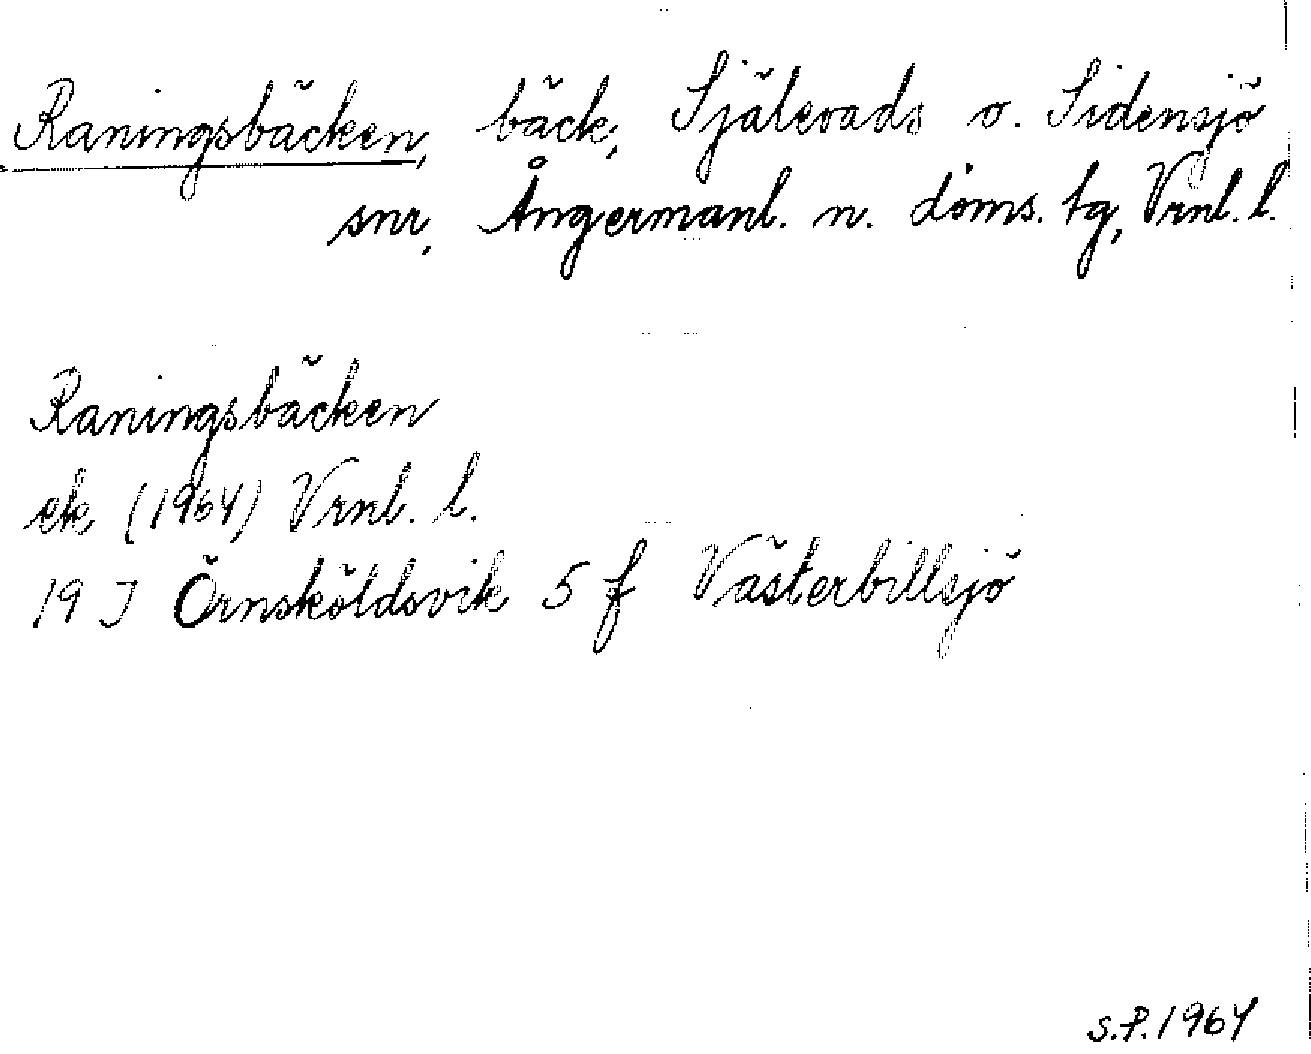 Raningsbäcken, bäck, Själevads o. Sidensjö
snr, Ångermanl. n. doms. tg, Vrnl. l.
Raningsbäcken
ek (1964) Vrnl. l.
19 J Örnsköldsvik 5 f Västerbillsjö
S.P. 1964